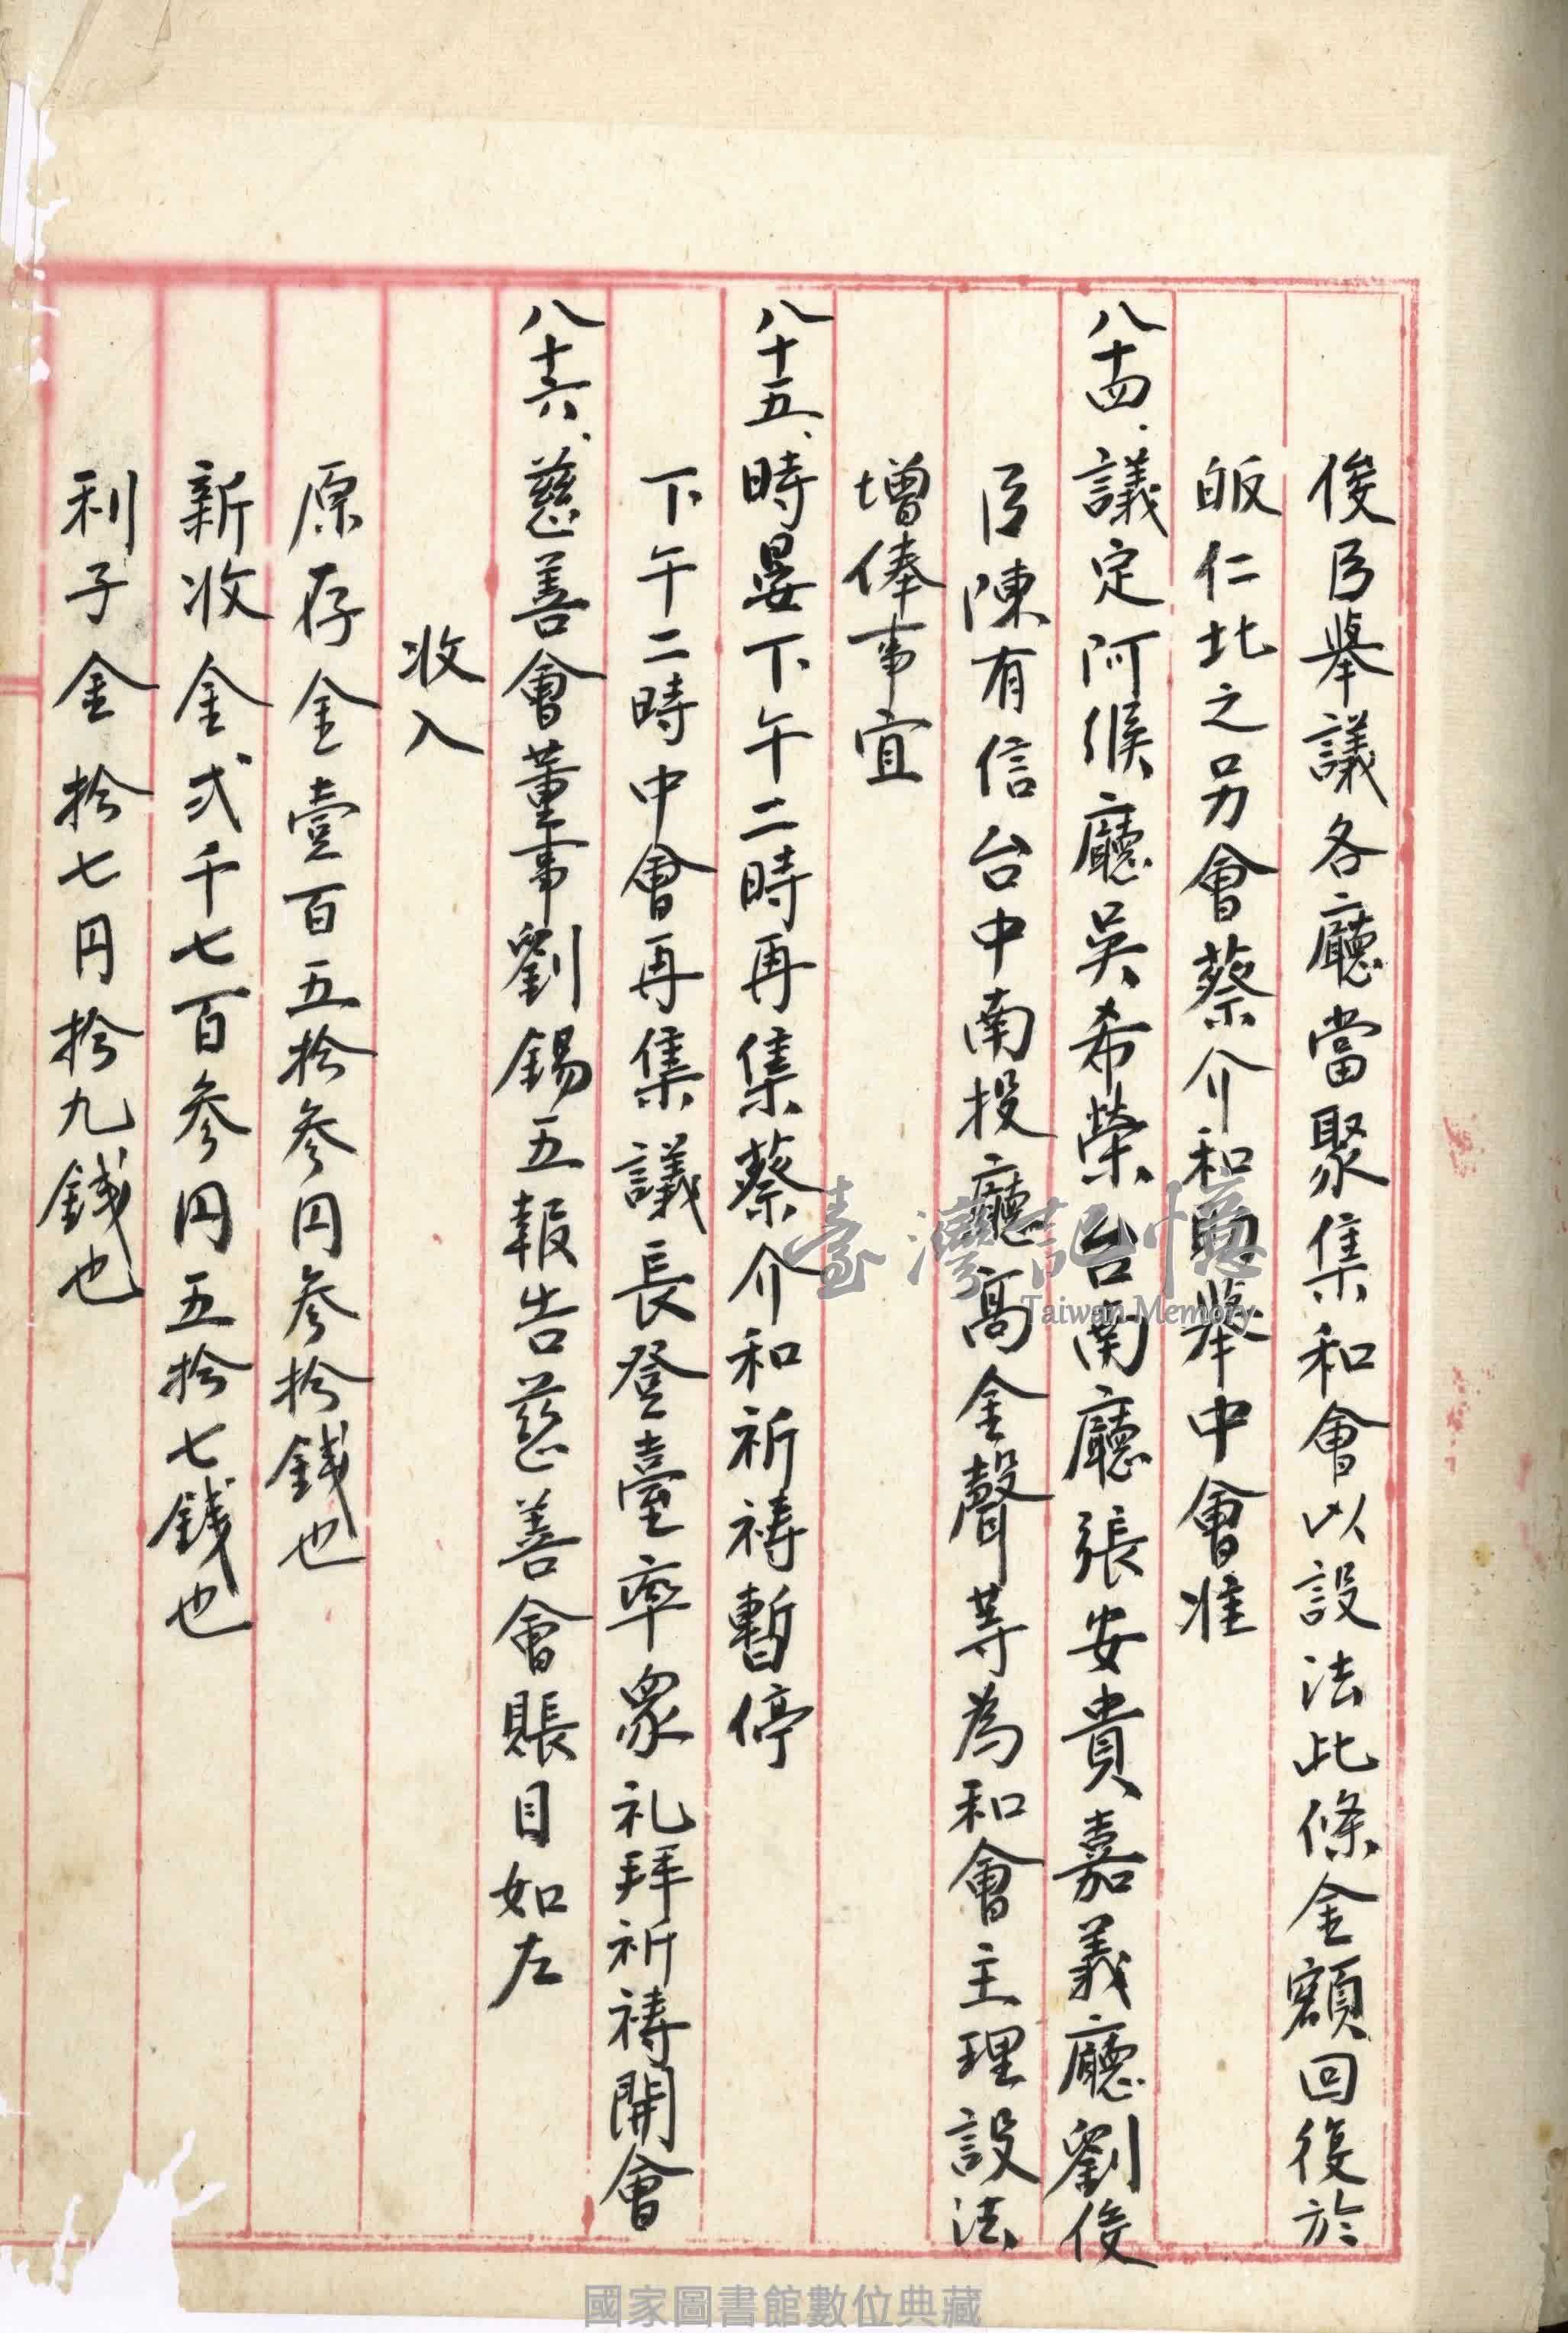 俊臣舉議各廳當聚集和會以設法此條金額回復於
皈仁北之另會蔡介和閏舉中會准
八十四、議定阿緱廳吳希榮台南廳張安貴嘉義廳劉俊
臣陳有信台中南投廳高金聲等為和會主理設法
增俸事宜
八十五、時晏下午二時再集蔡介和祈禱暫停
下午二時中會再集議長登臺率眾礼拜祈禱開會
八十六、慈善會董事劉錫五報告慈善會賬目如左
收入
原存金壹百五拾參円參拾錢也
新收金弍千七百參円五拾七錢也
利子金拾七円拾九錢也
臺灣記憶
Taiwan Memory
國家圖書館數位典藏